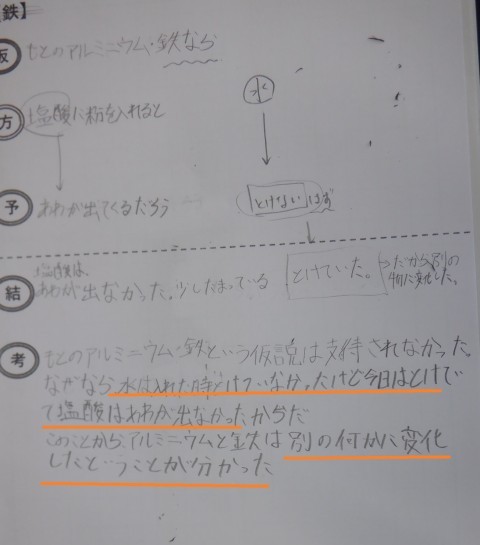 鉄】
仮 もとのアルミニウム・鉄なら
水
方 塩酸に粉を入れると
予 あわが出てくるだろう
とけないはず
塩酸は、
結 あわが出なかった。少したまっている
とけていた。
だから別の
物に変化した。
考 もとのアルミニウム・鉄という仮説は支持されなかった。
なぜなら水は入れた時とけていなかったけど今日はとけてい
て塩酸はあわが出なかったからだ
このことからアルミニウムと鉄は別の何かに変化
したということが分かった